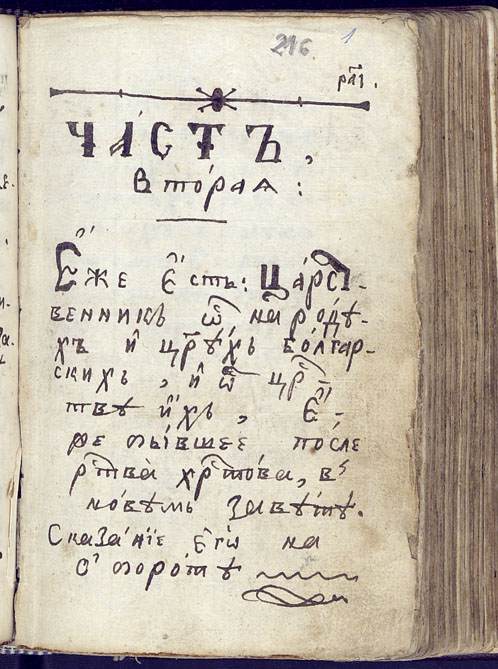 216 1
ЧА́СТЪ,
вто́рая:
Е҆́же Е҆́сть: Ца́рст-
венникъ ѿ наро́дѣ-
хъ и҆ црѣ́хъ бо́лгар-
скихъ, и҆ ѿ црⷭ-
твѣ и҆́хъ, Е҆́-
по́сле
ржⷭтва̀ хрⷭто́ва, в
но́вѣмъ завѣ́тѣ.
Сказа́нїе є҆гѡ̀ на